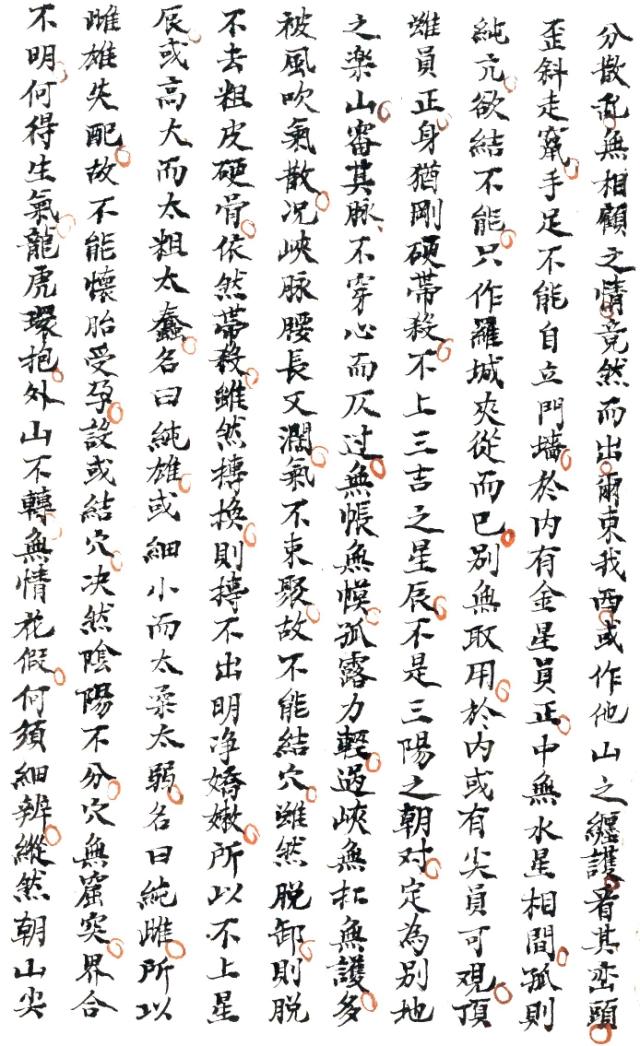 分散乱無相顧之情竟然而出爾東我西或作他山之纏護看其峦頭
歪斜走竄手足不能自立門墻於内有金星員正中無水星相間孤則
純亢欲結不能只作羅城夾從而已别無取用於内或有尖員可观頂
雖員正身猶剛硬帶殺不上三吉之星辰不是三陽之朝对定為别地
之楽山審其脉不穿心而仄过無帳無幙孤露力輕過峽無扛無護多
被風吹氣散况峽脉腰長又濶氣不束聚故不能結穴雖然脱卸則脱
不去粗皮硬骨依然帶殺雖然摶换則摶不出明净嬌嫩所以不上星
辰或高大而太粗太蠢名曰純雄或細小而太柔太弱名曰純雌所以
雌雄失配故不能懷胎受孕設或結穴决然陰陽不分穴無窟突界合
不明何得生氣龍虎環抱外山不轉無情花假何須細辨縱然朝山尖